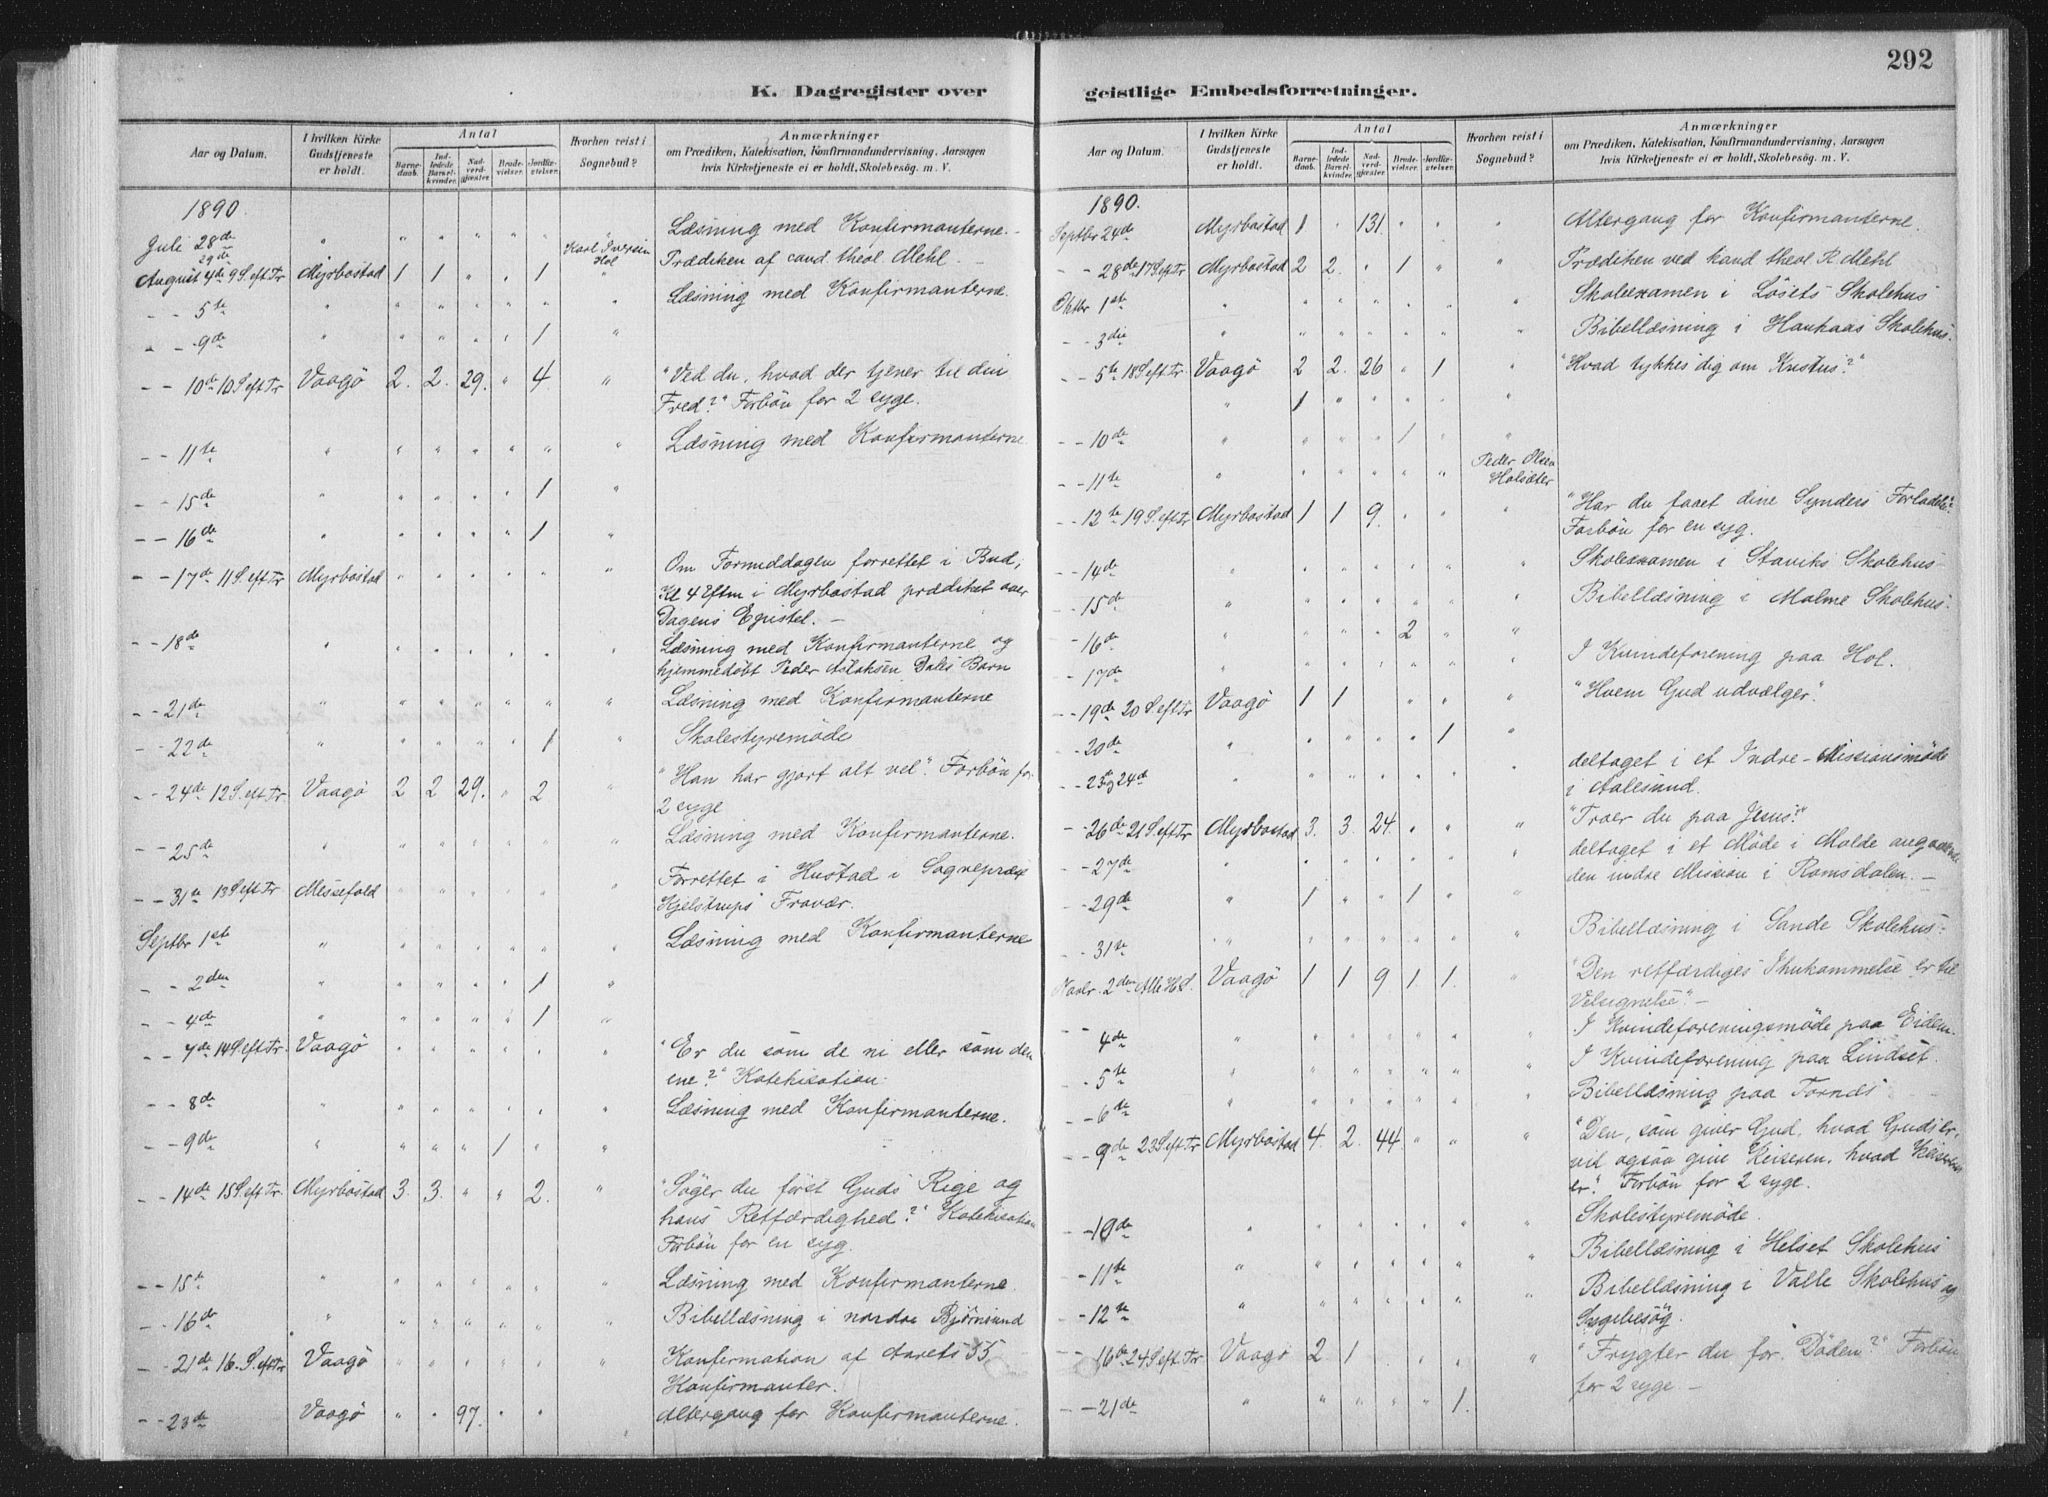 292
K. Dagregister over geistlige Embedsforretninger.
Aar og Datum. I hvilken Kirke Gudstjeneste er holdt. Antal Barnedaab. Indledede Barselkvinder. Nadverdgjæster. Brudevielser. Jordfæstelser. Hvorhen reist i Sognebud? Anmærkninger om Prædiken, Katekisation, Konfirmandundervisning, Aarsagen hvis Kirketjeneste ei er holdt, Skolebesøg. m. V.
1890.
Juli 28de " " " " " " " Læsning med Konfirmanterne.
29de Karl Iversen Hol
August 4de 9 S. eft Tr Myrbostad 1 1 " " 1 " Prædiken af cand. theol. Mehl. —
- - 5te " " " " " " " Læsning med Konfirmanterne.
- - 9de " " " " " 1 "
- - 10de 10 S. eft Tr Vaagö 2. 2. 29. " 4 " "Ved du, hvad der tjener til din
Fred?" Forbön for 2 syge.
- - 11te " " " " " " " Læsning med Konfirmanterne
- - 15de " " " " " 1 "
- - 16de " " " " " 1 "
- - 17de 11 S. eft Tr Myrbostad " " " " " " Om Formiddagen forrettet i Bud,
Kl 4 Eftm i Myrbostad prædiket over
Dagens Epistel. —
- - 18de " " " " " " " Læsning med Konfirmanterne og
hjemmedöbt Peder Aslaksen Dales Barn
- - 21de " " " " " " " Læsning med Konfirmanterne
- - 22de " " " " " 1 " Skolestyremöde
- - 24de 12 S. eft Tr Vaagö 2 2 29. " 2 " "Han har gjort alt vel". Forbön for
2 syge
- - 25de " " " " " " " Læsning med Konfirmanterne.
- - 31te 13 S eft Tr Messefald " " " " " " Forrettet i Hustad i Sognepræst
Kjelstrups Fravær.
Septbr 1ste " " " " " " " Læsning med Konfirmanterne
- - 2den " " " " " 1 "
- - 4de " " " " " 1 "
- - 7de 14 S. eft Tr. Vaagö " " " " " " "Er du som de ni eller som den
ene?" Katekisation.
- - 8de " " " " " " " Læsning med Konfirmanterne.
- - 9de " " " " 1 " "
- - 14de 15 S. eft Tr. Myrbostad 3. 3. " " 2. " "Söger du först Guds Rige og
hans Retfærdighed?" Katekisation
Forbön for en syg.
- - 15de " " " " " " " Læsning med Konfirmanterne.
- - 16de " " " " " " " Bibellæsning i nordre Björnsund
- - 21de 16. S. eft Tr Vaagö " " " " " " Konfirmation af Aarets 55
Konfirmanter.
- - 23de Vaagö " " 97. " " Altergang for Konfirmanterne.
Aar og Datum. I hvilken Kirke Gudstjeneste er holdt. Antal Barnedaab. Indledede Barselkvinder. Nadverdgjæster. Brudevielser. Jordfæstelser. Hvorhen reist i Sognebud? Anmærkninger om Prædiken, Katekisation, Konfirmandundervisning, Aarsagen hvis Kirketjeneste ei er holdt, Skolebesøg. m. V.
1890.
Septbr 24de Myrbostad 1 " 131. " " " Altergang for Konfirmanterne.
- - 28de 17 S eft Tr Myrbostad 2 2. " 1 " " Prædiken ved kand theol R. Mehl
Oktbr 1ste " " " " " " " Skoleexamen i Lösets Skolehus
- - 3die " " " " " " " Bibellæsning i Haukaas Skolehus.
- - 5te 18 S. eft Tr. Vaagö 2 2. 26 " 1 " "Hvad tykkes dig om Kristus?"
" 1 " " " " "
- - 10de " " " " 1 " "
- - 11te " " " " " " Peder Olsen Holsæter
- - 12te 19 S. eft Tr Myrbostad 1 1 9. " " " "Har du faaet dine Synders Forladelse?"
Forbön for en syg.
- - 14de " " " " " " " Skolexamen i Staviks Skolehus
- - 15de " " " " " " " Bibellæsning i Malme Skolehus.
- - 16de " " " " 2 " "
- - 17de " " " " " " " I Kvindeforening paa Hol.
- - 19de 20 S eft Tr Vaagö 1 1 " " " "Hvem Gud udvælger".
- - 20de " " " " " 1 "
- - 23 og 24de " " " " " " " deltaget i et Indre-Missionsmöde
i Aalesund.
- - 26de 21 S. eft Tr Myrbostad 3. 3. 24. " " " "Troer du paa Jesus?"
- - 27de " " " " " " " deltaget i et Möde i Molde angaaende
den indre Mission i Romsdalen. —
- - 29de " 1 " " 1 " "
- - 31te " " " " " " " Bibellæsning i Sande Skolehus.
Novbr. 2den Alle H. D. Vaagö 1 1 9 1. 1. " "Den retfærdiges Ihukommelse er til
Velsignelse". —
- - 4de " " " " " " " I Kvindeforeningsmöde paa Eidem.
- - 5te " " " " " " " I Kvindeforening paa Lindset.
- - 6te " " " " " " " Bibellæsning paa Tornes
- - 9de 23 S eft Tr Myrbostad 4. 2. 44. " " " "Den, som giver Gud, hvad Guds er,
vil ogsaa give Keiseren, hvad Keiserens
er". Forbön for 2 syge.
- - 10de " " " " " " " Skolestyremöde.
- - 11te " " " " " " " Bibellæsning i Helset Skolehus
- - 12te " " " " " " " Bibellæsning i Valle Skolehus og
Sygebesög.
- - 16de 24 S eft Tr. Vaagö 2. 1. " " " " "Frygter du for Döden?" Forbön
for 2 syge —
- - 21de " " " " " 1.